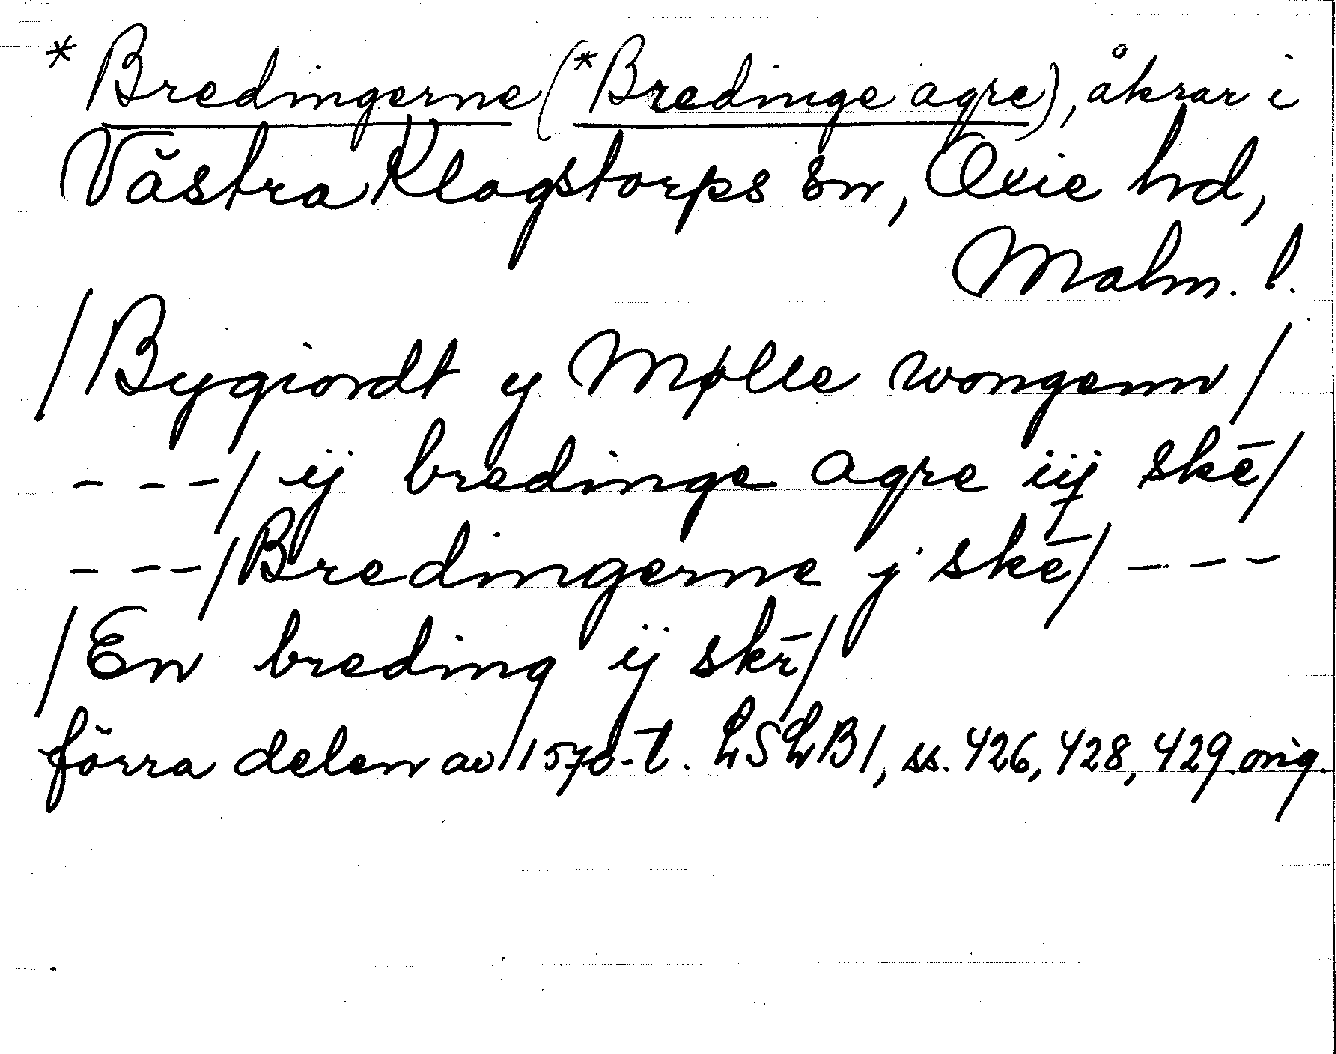 * Bredingerne (*Bredinge agre), åkrar i
Västra Klagstorps sn, Oxie hd,
Malm. l.
/Bygiordt y Mølle wongenn/
- - -/ ij bredinge agre iij skē/
- - -/Bredingerne j skē/ - - -
/En breding ij skē/
förra delen av 1570-t. LSLB1, ss. 426, 428, 429. orig.